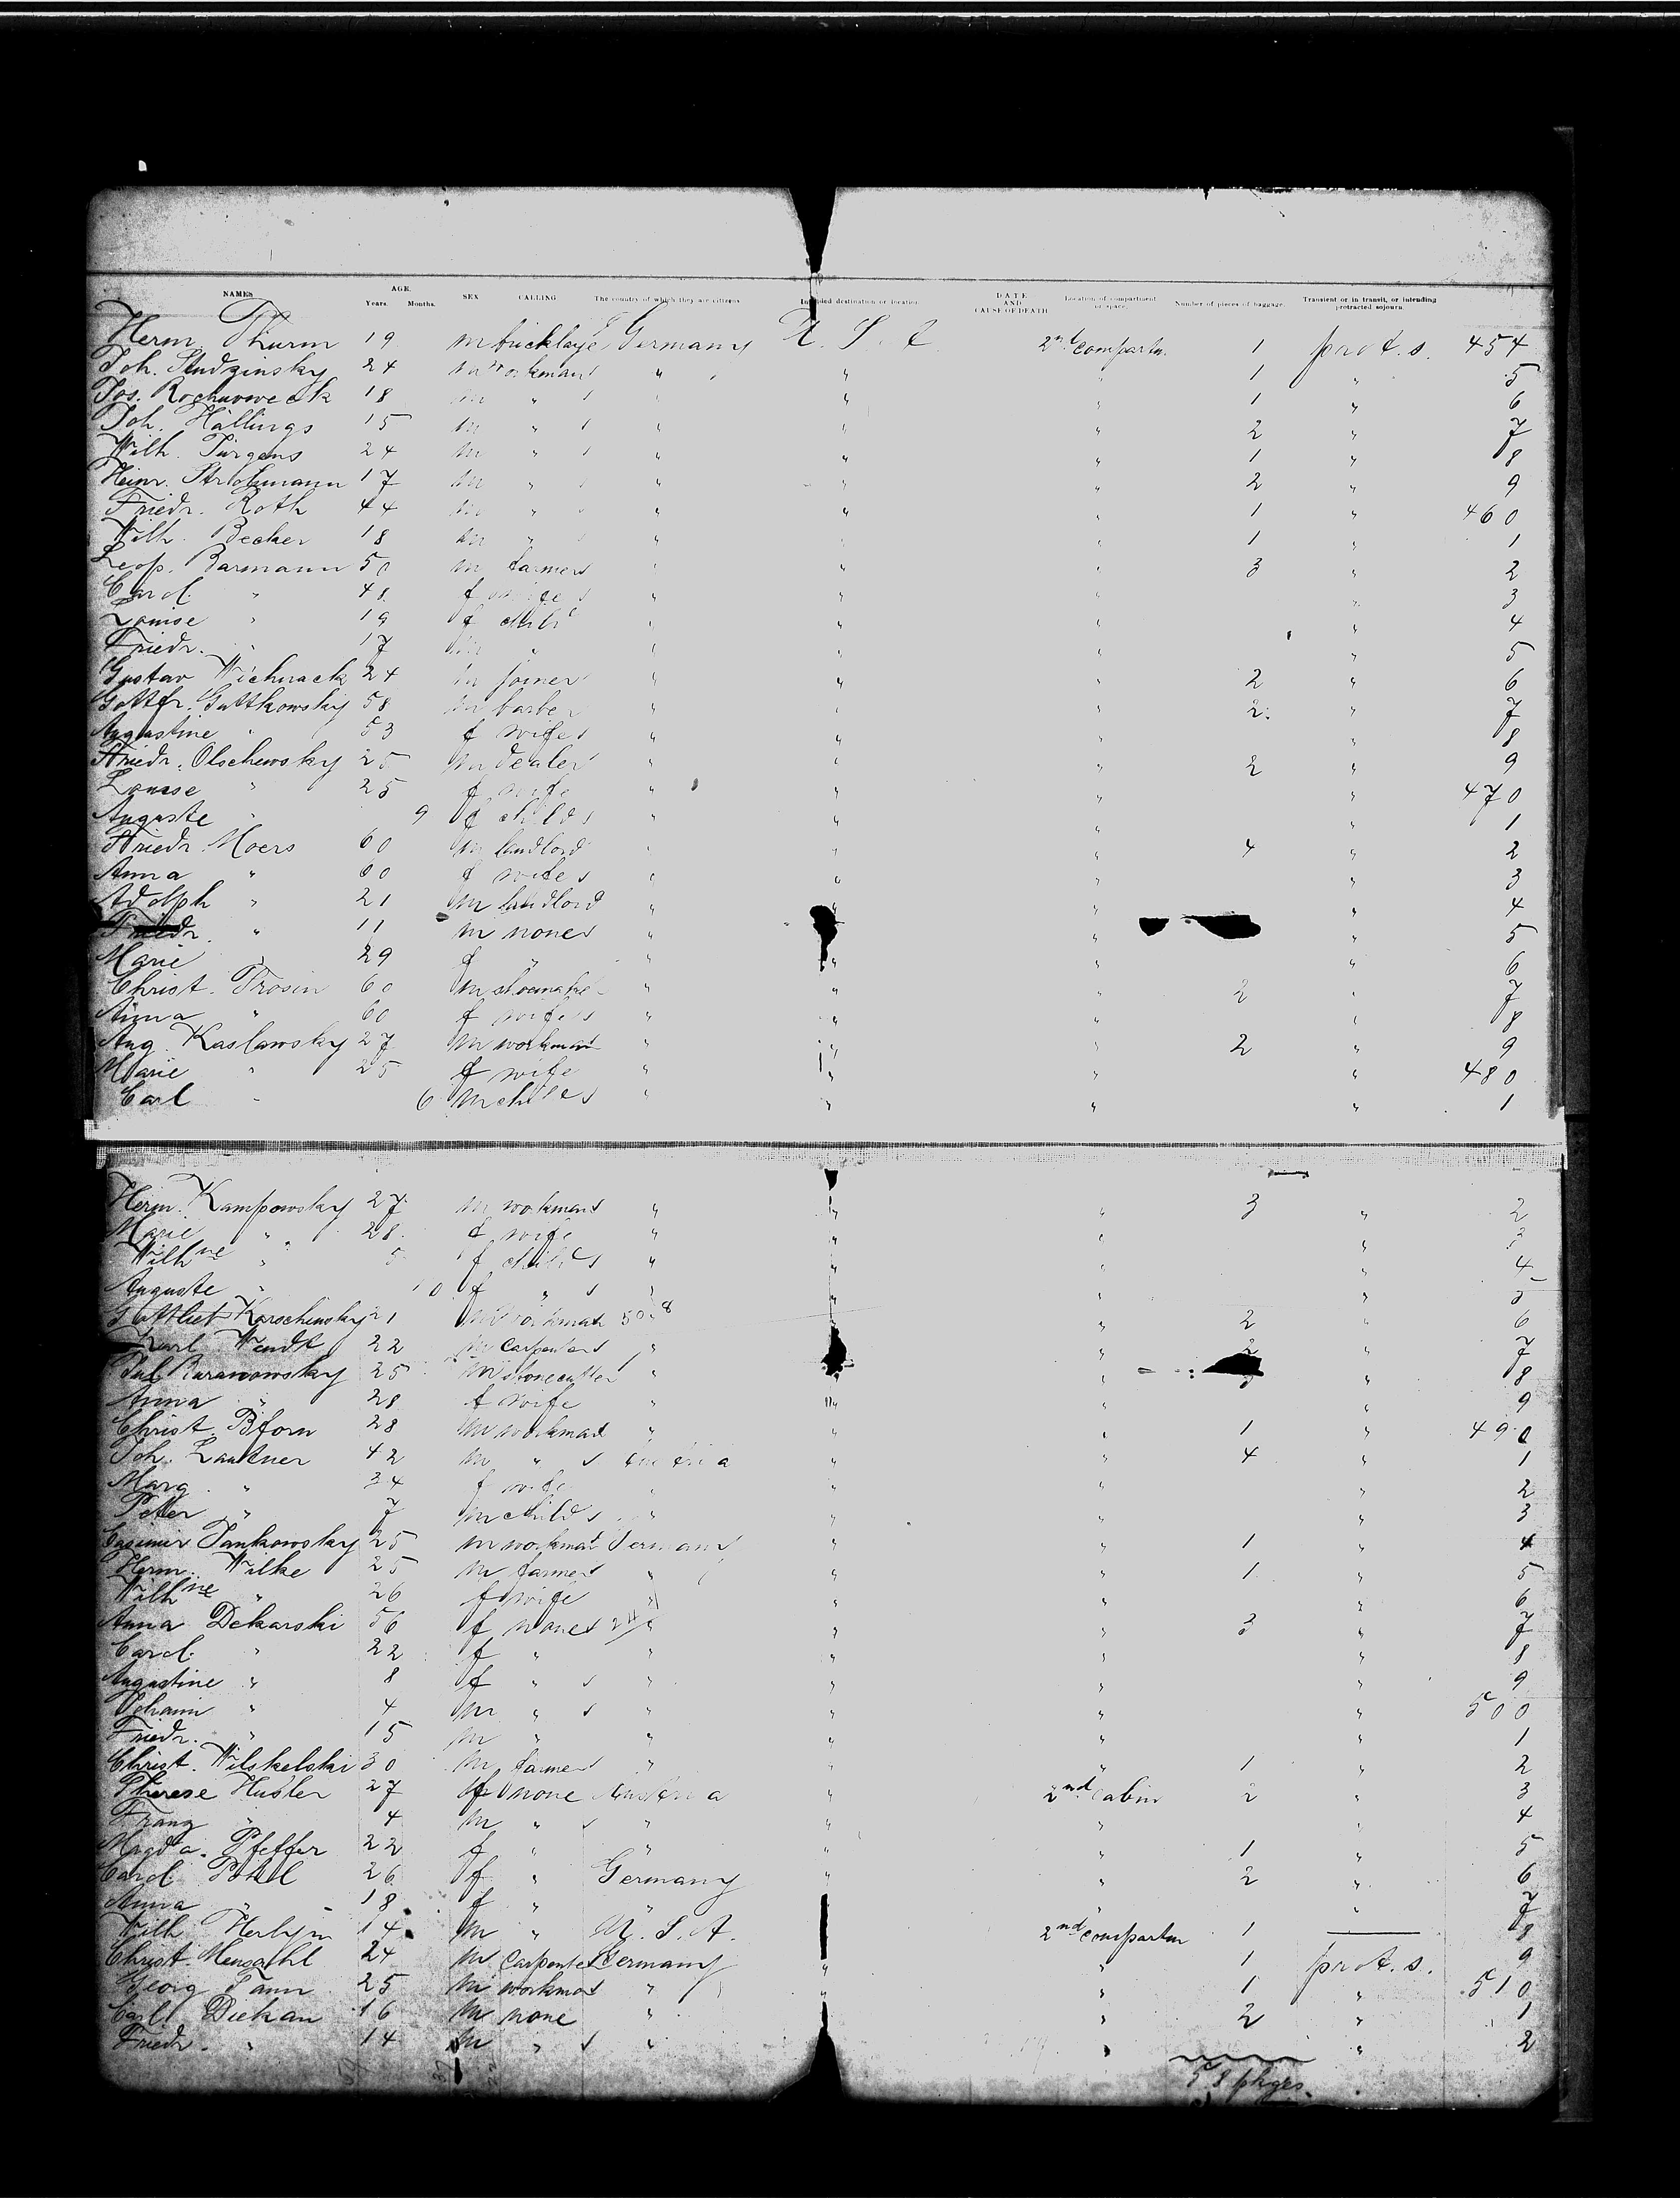 NAMES AGE. Years. Months. SEX CALLING The country of which they are citizens Intended destination or location DATE AND CAUSE OF DEATH Location of compartment or space. Number of pieces of baggage. Transient or in transit, or intending protracted sojourn.
Herm. Thurm 19 m bricklayer Germany U. S. A. 2nd compartm. 1 prot. s. 454
Joh. Studzinsky 24 m workman " " " 1 " 5
Jos. 18 m " " " " 1 " 6
Joh. Hallings 15 m " " " " 2 " 7
Wilh. Jürgens 24 m " " " " 1 " 8
Heinr. 17 m " " " " 2 " 9
Friedr. Roth 44 m " " " " 1 " 460
Wilh. Becker 18 m " " " " 1 " 1
Leop. Barmann 50 m farmer " " " 3 " 2
Carol. " 48 f wife " " " " 3
Louise " 19 f child " " " " 4
Friedr. " 17 m " " " " " 5
Gustav Wichnack 24 m joiner " " " 2 " 6
Gottfr. Guttkowsky 58 m barber " " " 2 " 7
Augustine " 53 f wife " " " " 8
Friedr. Olschewsky 25 m dealer " " " 2 " 9
Louise " 25 f wife " " " " 470
Auguste " 9 f child " " " " 1
Friedr. Moers 60 m landlord " " " 4 " 2
Anna " 60 f wife " " " " 3
Adolph " 21 m landlord " " " " 4
Friedr. " 11 m none " " " " 5
Marie " 29 f " " " " " 6
Christ. Frosin 60 m shoemaker " " " 2 " 7
Anna " 60 f wife " " " " 8
Aug. Kaslawsky 27 m workman " " " 2 " 9
Marie " 25 f wife " " " " 480
Carl " 6 m child " " " " 1
Herm. Kampowsky 27 m workman " " " 3 " 2
Marie " 28 f wife " " " " 3
Wilhne " 5 f child " " " " 4
Auguste " 10 f " " " " " 5
Gottlieb Karschinsky 21 m workman " " 2 " 6
Karl Wendt 22 m carpenter " " " 2 " 7
Jul. Baranowsky 25 m stonecutter " " " " 8
Anna " 28 f wife " " " " 9
Christ. Bjorn 28 m workman " " " 1 " 490
Joh. Lautner 42 m " Austria " " 4 " 1
Marg. " 34 f wife " " " " 2
Peter " 7 m child " " " " 3
Casimir Jankowsky 25 m workman Germany " " 1 " 4
Herm. Wilke 25 m farmer " " " 1 " 5
Wilhne " 26 f wife " " " " 6
Anna Dekarski 56 f none " " " 3 " 7
Carol. " 22 f " " " " " 8
Augustine " 8 f " " " " " 9
Johann " 4 m " " " " " 500
Friedr. " 15 m " " " " " 1
Christ. Wilskelski 30 m farmer " " " 1 " 2
Therese Husler 27 f none Austria " 2nd cabin 2 " 3
Franz " 4 m " " " " " 4
Magda. Pfeffer 22 f " " " " 1 " 5
Carol. Pohl 26 f " Germany " " 2 " 6
Anna " 18 f " " " " 7
Wilh. 14 m " U. S. A. 2nd compartm 1 8
Christ. Mensahl 24 m carpenter Germany " " 1 prot. s. 9
Georg Tann 25 m workman " " " 1 " 510
Carl Diekan 16 m none " " 2 " 1
Friedr. " 14 m " " " " 2
58 pkges.